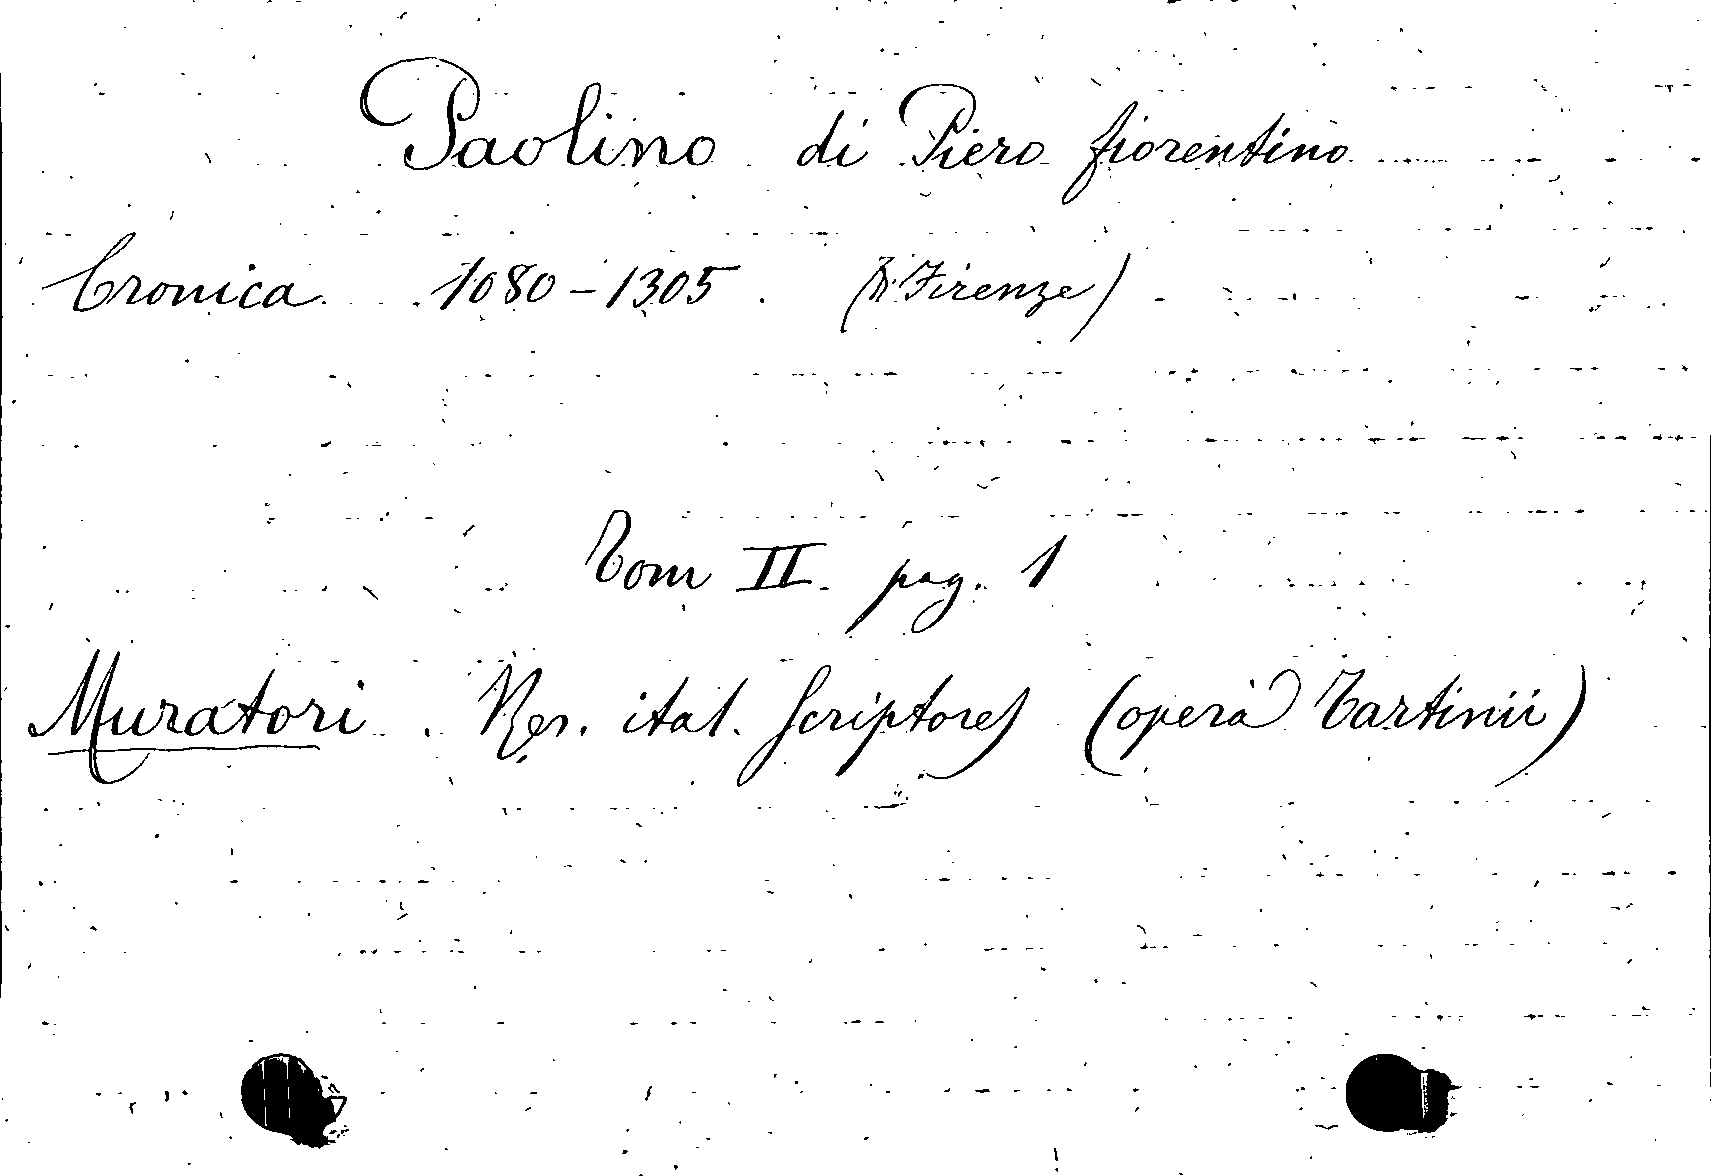 Paolino di Piero fiorentino
Cronica 1080-1305. (di Firenze)
Tom II. pag. 1
Muratori. Rer. ital. Scriptores (opera Tartinii)